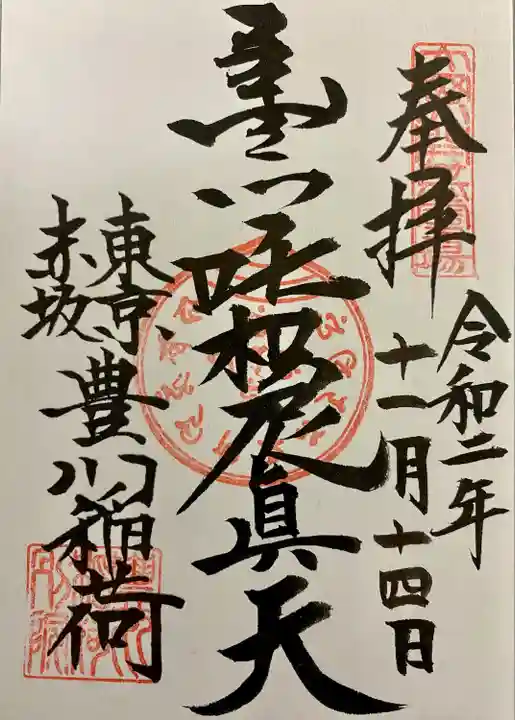 奉拝
令和二年
十一月十四日
豊川吒枳尼真天
東京
赤坂
豊川稲荷